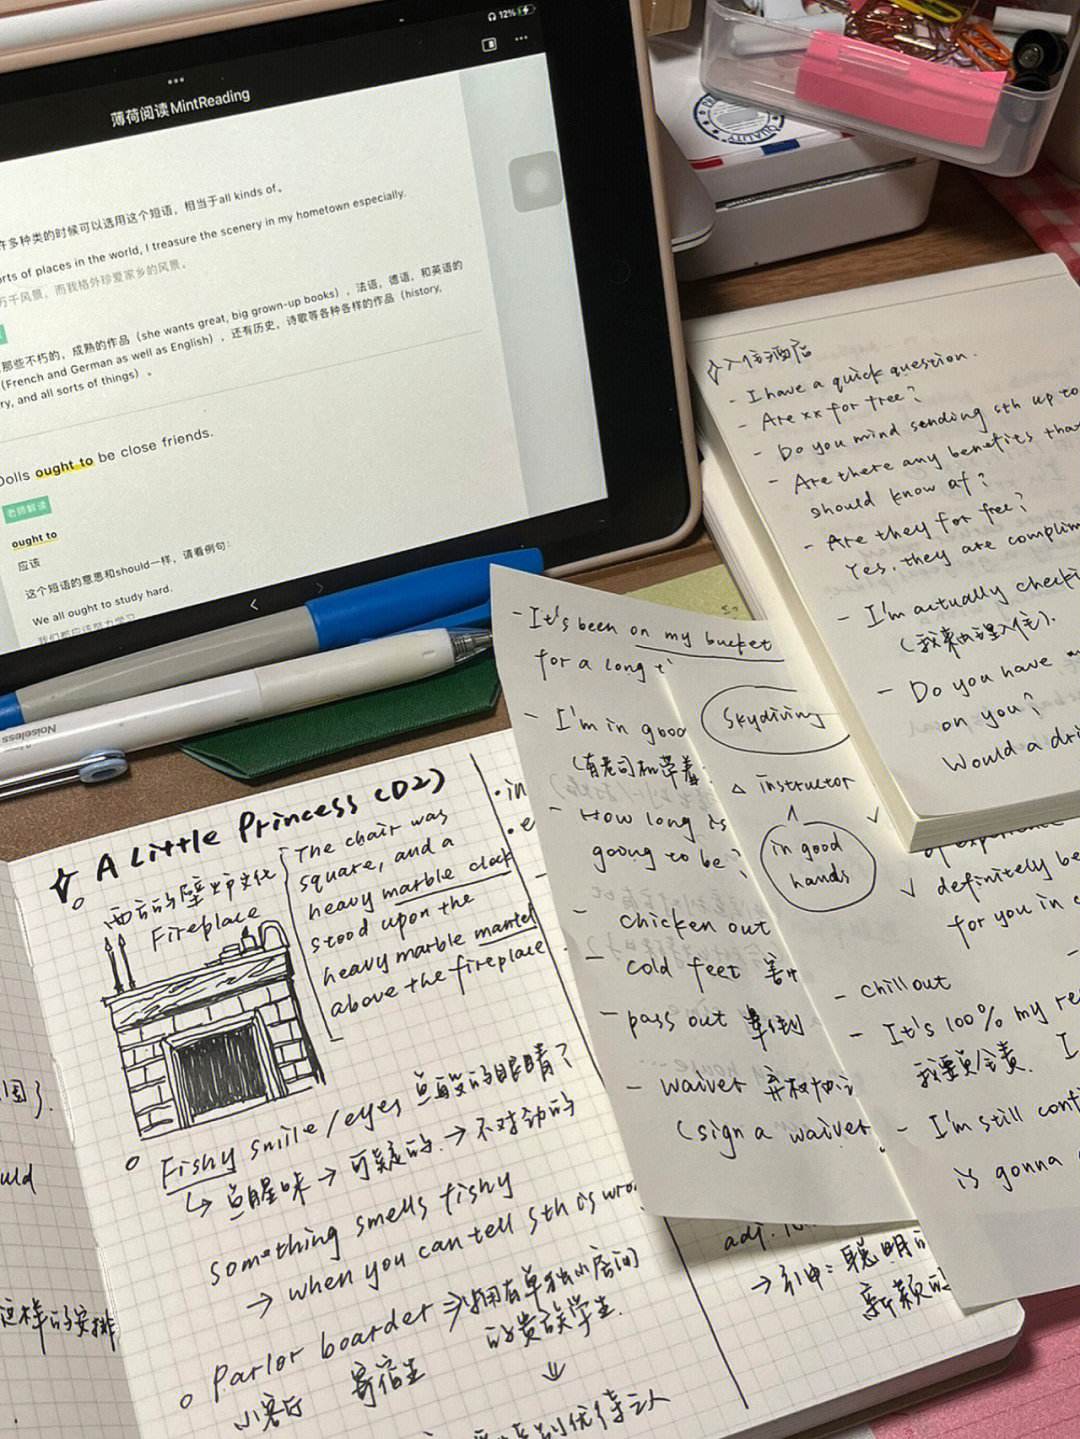 12%
薄荷阅读MintReading
许多种类的时候可以选用这个短语，相当于all kinds of。
rts of places in the world, I treasure the scenery in my hometown especially.
万千风景，而我格外珍爱家乡的风景。
那些不朽的，成熟的作品（she wants great, big grown-up books），法语，德语，和英语的
（French and German as well as English），还有历史，诗歌等各种各样的作品（history,
ry, and all sorts of things）。
Dolls ought to be close friends.
老师解读
ought to
应该
这个短语的意思和should一样，请看例句：
We all ought to study hard.
我们都应该努力学习
Noiseless
QUALITY
入住酒店
- I have a quick question.
- Are xx for free?
- Do you mind sending sth up to
- Are there any benefits that
should know of?
- Are they for free?
Yes, they are complim
- I'm actually checki
(我来办理入住).
- Do you have
on you?
Would a dri
- It's been on my bucket
for a long t
- I'm in good
- How long is
going to be?
- chicken out
- cold feet 害怕
- pass out 晕倒
- waiver 弃权协议
(sign a waiver
Skydiving
△ instructor
in good
hands
√
√ definitely be
for you in c
- chill out
- It's 100% my re
我要负全责. I
- I'm still cont
is gonna
A Little Princess (D2)
西方的壁炉文化
Fireplace
The chair was
square, and a
heavy marble clock
stood upon the
heavy marble mantel
above the fireplace
• in
• e
Fishy smile/eyes
↳ 鱼腥味 → 可疑的 → 不对劲的
something smells fishy
→ when you can tell sth is wro
Parlor boarder ⇒ 拥有单独小房间
的贵族学生.
小客厅 寄宿生
⇓
别优待之人
adj.
→ 引申: 聪明的
新颖的
uld
这样的安排